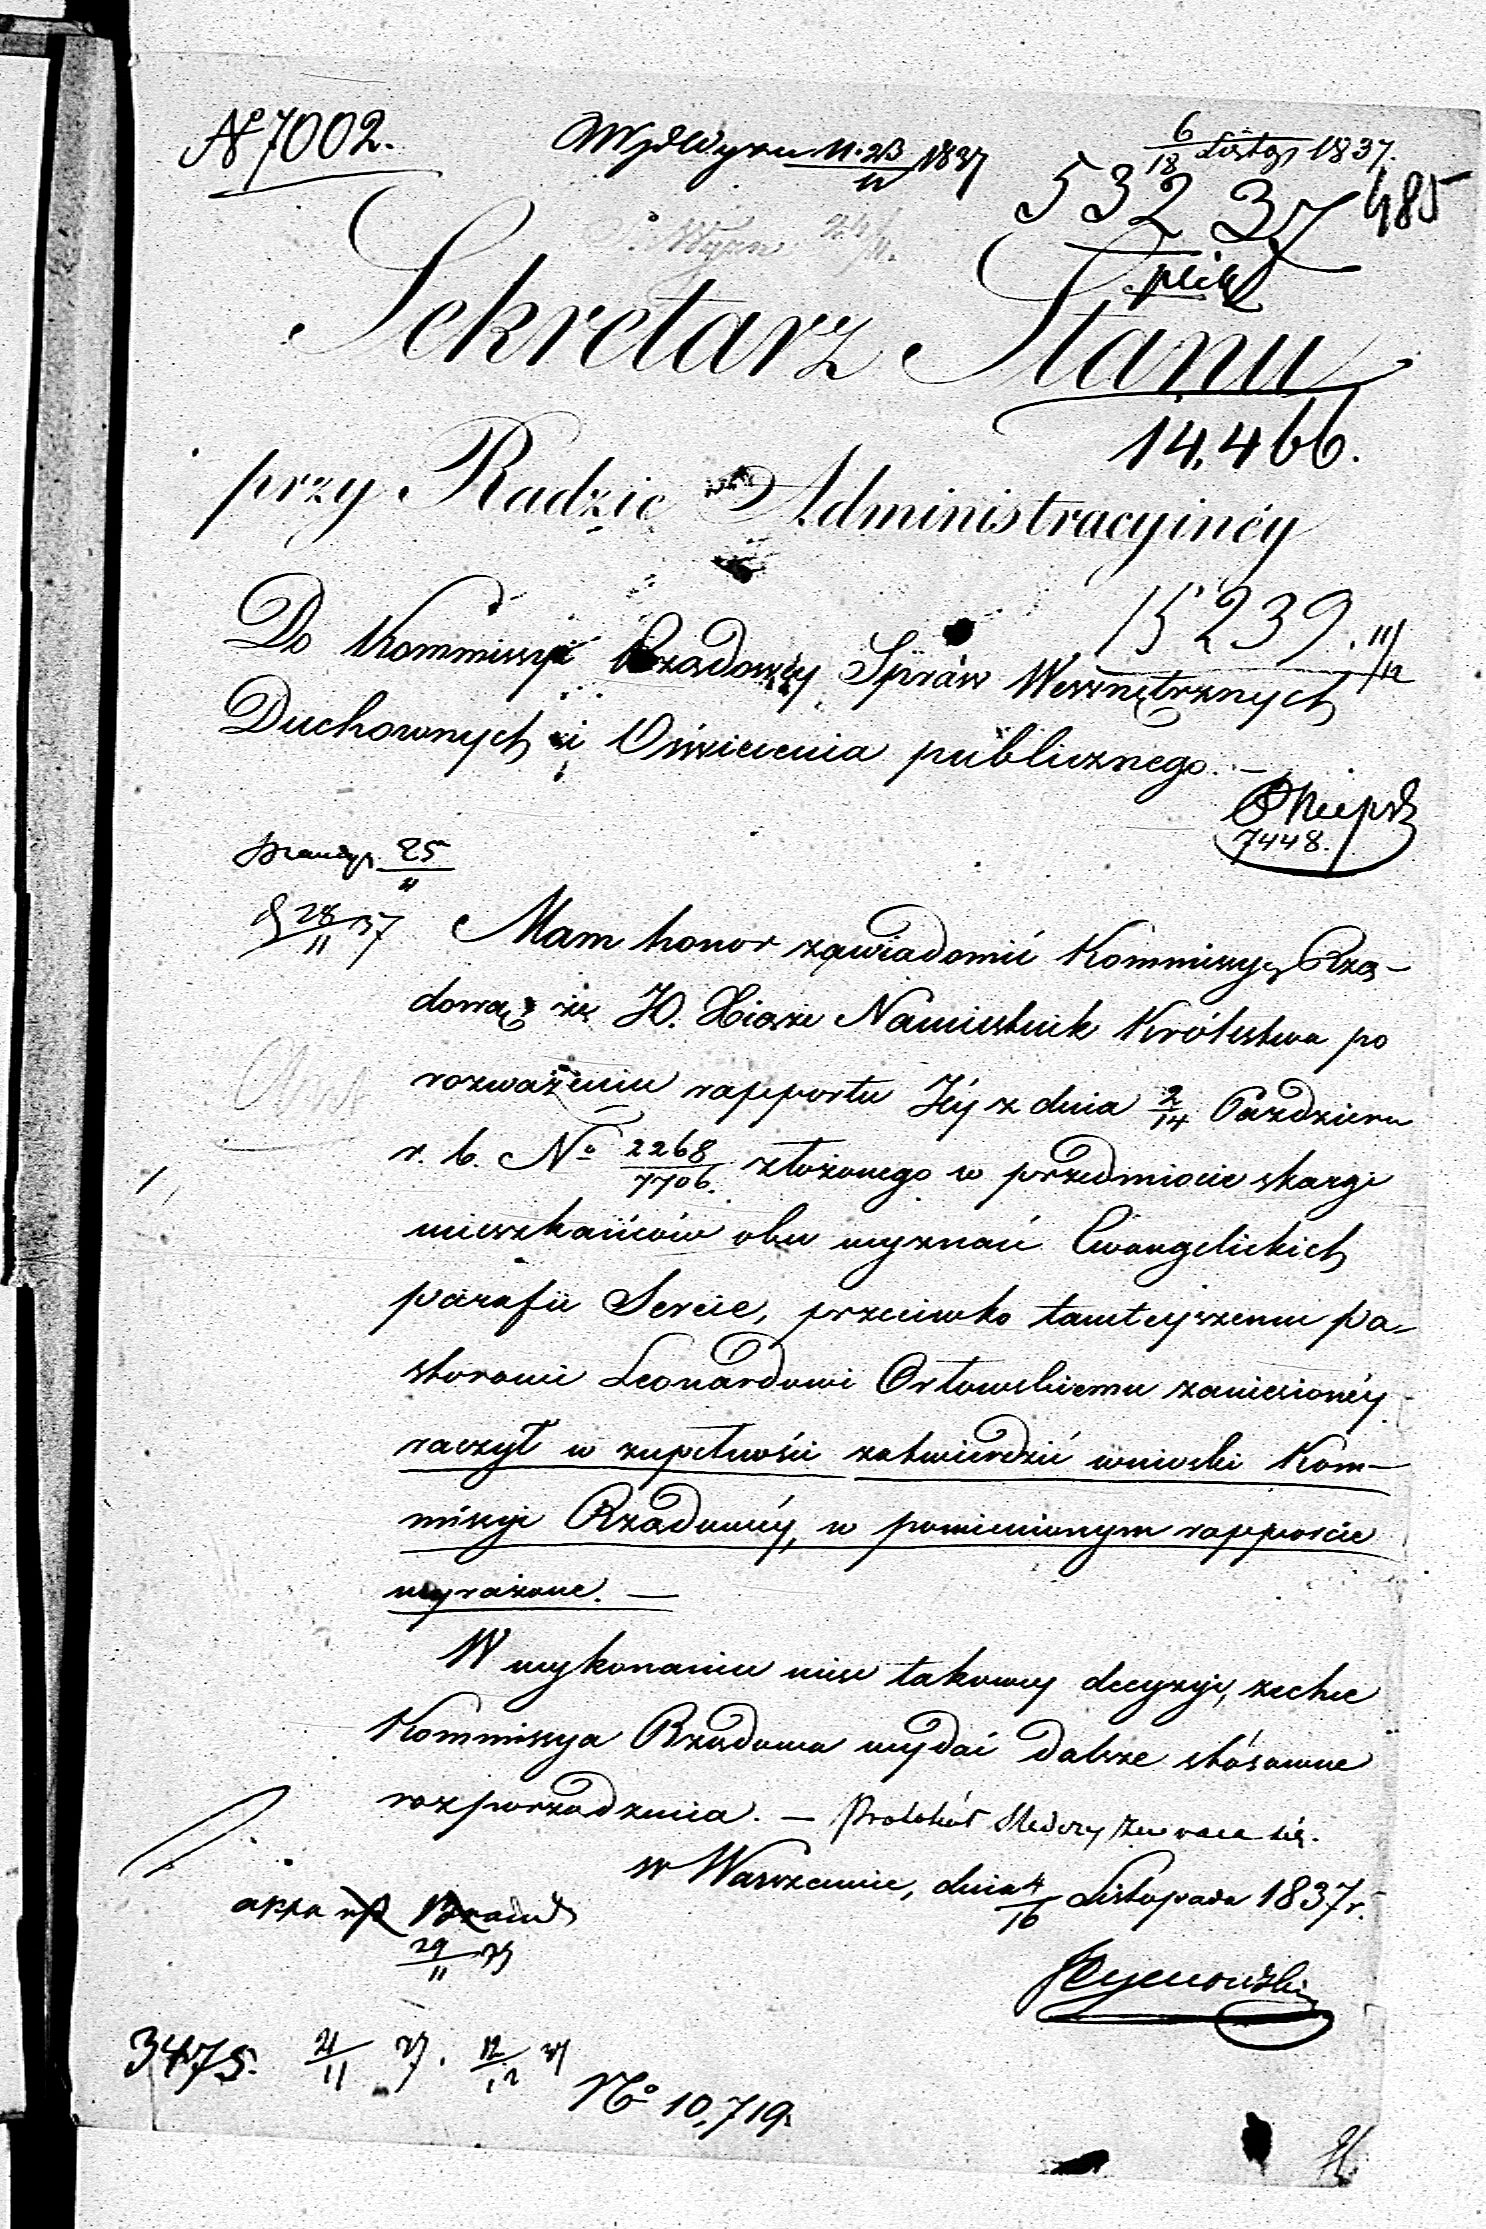 No 7002.
Wydz Wyzn 11. 23/11 1837
6/18 Listop 1837.
53237
485
Wyzn 24/11.
Sekretarz Stanu
14,466.
przy Radzie Administracyinéy
15239. 11/12
Do Kommissyi Rządowéy Spraw Wewnętrznych
Duchownych i Oświecenia publicznego. —
7448.
25/11
28/11 37
Mam honor zawiadomić Kommissyą Rzą-
dową, że JO. Xiąże Namiestnik Królestwa po
rozważeniu rapportu Jéy z dnia 2/14 Październ
r. b. No 2268/7706. złożonego w przedmiocie skargi
mieszkańców obu wyznań Ewangelickich
parafii Sereie, przeciwko tamteyszemu pa-
storowi Leonardowi Orłowskiemu zaniesionéy
raczył w zupełności zatwierdzić wnioski Kom-
missyi Rządowéy, w pomienionym rapporcie
wyrażone. —
W wykonaniu więc takowéy decyzyi, zechce
Kommissya Rządowa wydać dalsze stósowne
rozporządzenia. — Protokół śledczy zwraca się.
w Warszawie, dnia 4/16 Listopada 1837 r.
akta
29/11 37
3475. 21/11 37. 12/12 37
No 10,719.